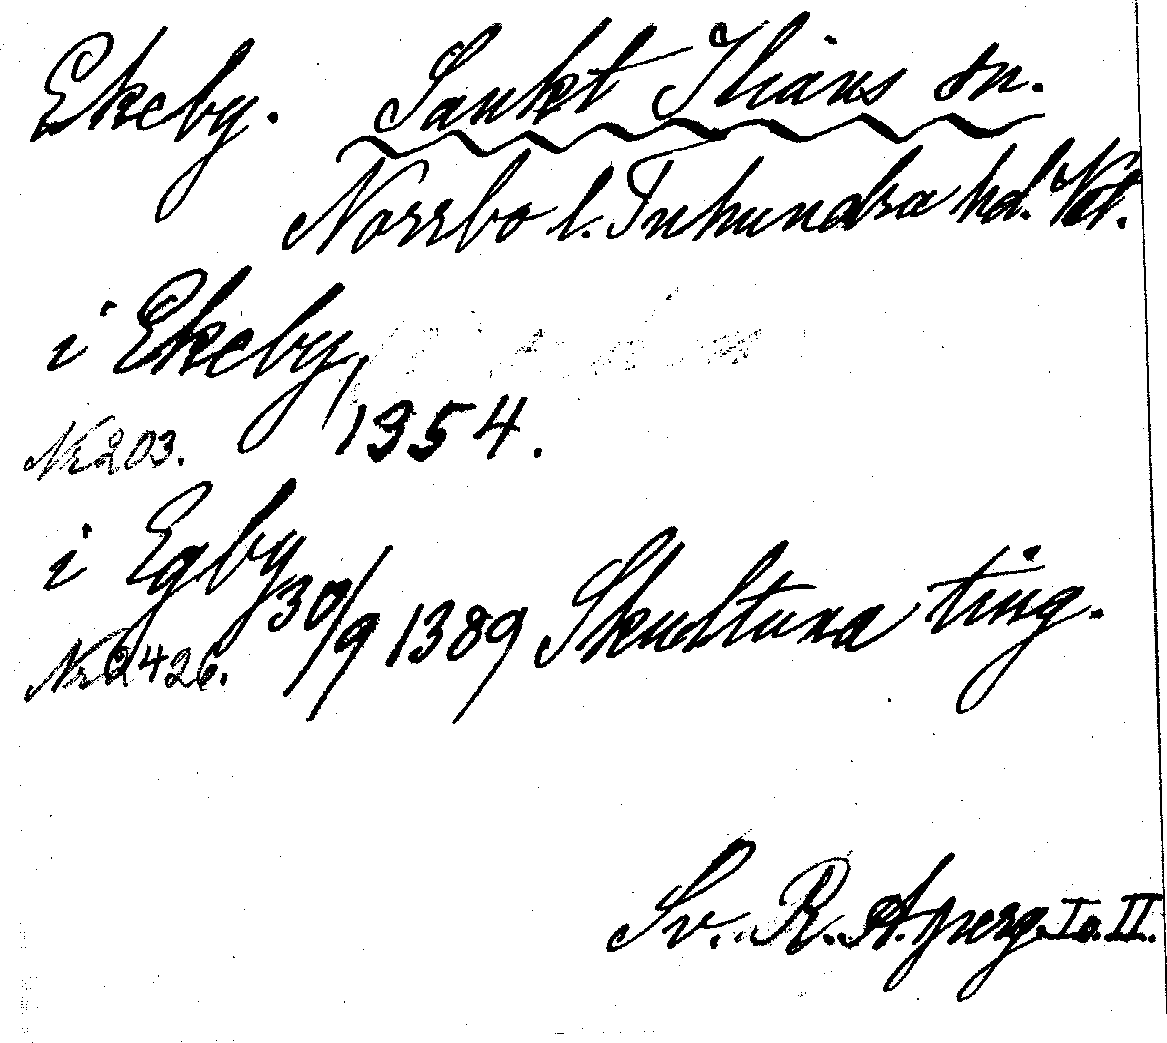 Ekeby. Sankt Ilians sn.
Norrbo l. Tuhundra hd. Vstm.
i Ekeby,
Nr 203. 1354.
i Egby 30/9 1389 Skultuna ting.
Nr 2426.
Sv. R. A. perg. I o. II.